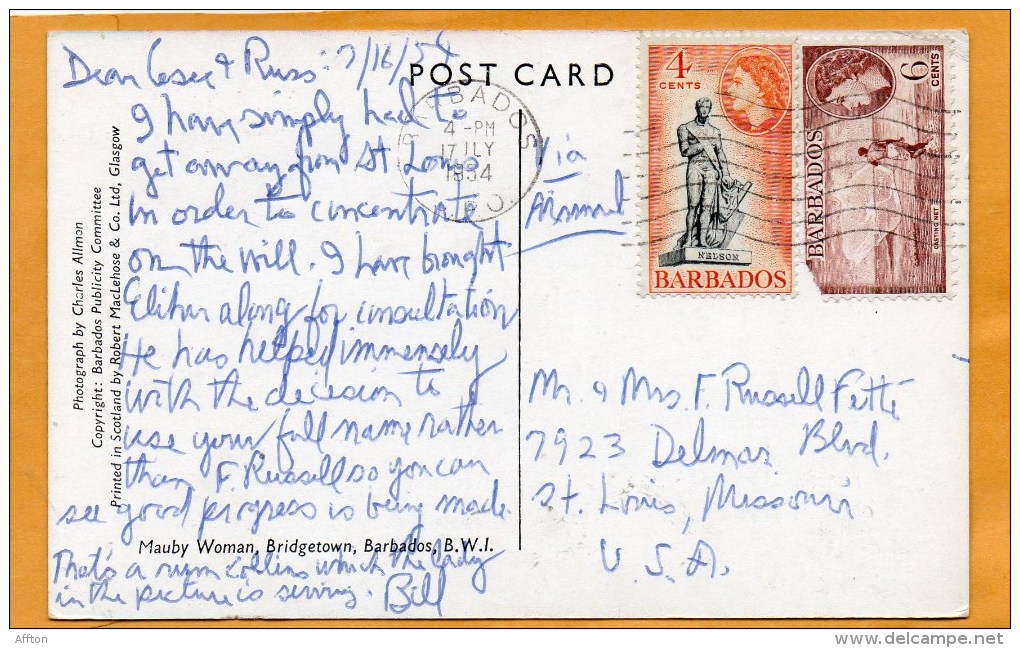 Dear & Russ: 7/16/54
I have simply had to
get away from St Louis
in order to concentrate
on the will. I have brought
Elihu along for consultation
He has helped immensely
with the decision to
use your full name rather
than F. Russell so you can
see good progress is being made.
That's a rum collins which the lady
in the picture is serving. Bill
Mauby Woman, Bridgetown, Barbados, B.W.I.
Photograph by Charles Allmon
Copyright: Barbados Publicity Committee
Printed in Scotland by Robert MacLehose & Co. Ltd, Glasgow
POST CARD
BARBADOS
4 - PM
17 JLY
1954
G.P.O.
Via
Airmail
4
CENTS
NELSON
BARBADOS
6
CENTS
BARBADOS
CASTING NET
Mr. & Mrs. F. Russell Fette
7923 Delmar Blvd.
St. Louis, Missouri
U.S.A.
Affton
www.delcampe.net